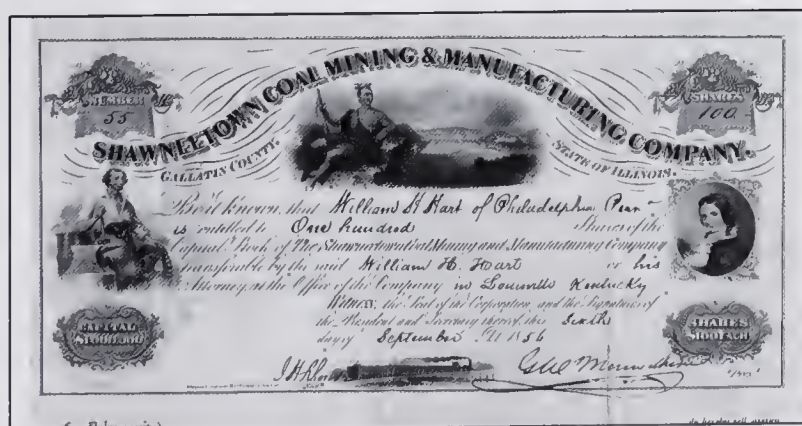 SHAWNEETOWN COAL MINING & MANUFACTURING COMPANY.
NUMBER
55
SHARES
100
GALLATIN COUNTY.
STATE OF ILLINOIS.
Be it known, that William H Hart of Philadelphia Penn
is entitled to One hundred Shares of the
Capital Stock of The Shawneetown Coal Mining and Manufacturing Company
transferable by the said William H. Hart or his
Attorney, at the Office of the Company in Louisville Kentucky
Witness, the Seal of the Corporation, and the Signatures of
the President and Secretary thereof, this Sixth
day of September A.D. 1856
CAPITAL
$1000.000
SHARES
$100 EACH